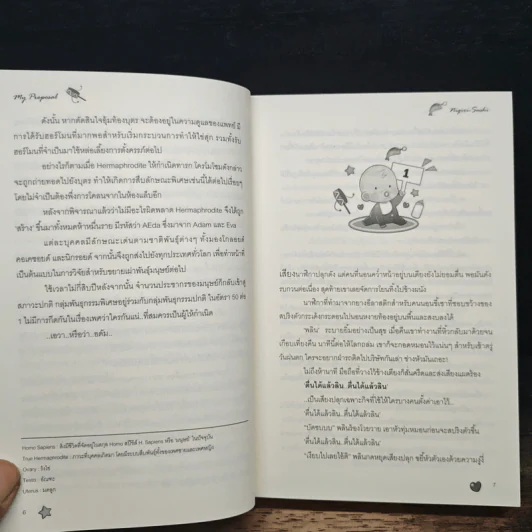 My Proposal
ดังนั้น หากตัดสินใจอุ้มท้องบุตร จะต้องอยู่ในความดูแลของแพทย์ มี
การได้รับฮอร์โมนที่มากพอสำหรับเริ่มกระบวนการทำให้ไข่สุก รวมทั้งรับ
ฮอร์โมนที่จำเป็นมาใช้หล่อเลี้ยงการตั้งครรภ์ต่อไป
อย่างไรก็ตามเมื่อ Hermaphrodite ให้กำเนิดทารก โครโมโซมดังกล่าว
จะถูกถ่ายทอดไปยังบุตร ทำให้เกิดการสืบลักษณะพิเศษเช่นนี้ได้ต่อไปเรื่อยๆ
โดยไม่จำเป็นต้องพึ่งการโคลนจากในห้องแล็บอีก
หลังจากพิจารณาแล้วว่าไม่มีอะไรผิดพลาด Hermaphrodite จึงได้ถูก
'สร้าง' ขึ้นมาทั้งหมดห้าหมื่นราย มีรหัสว่า AEda ซึ่งมาจาก Adam และ Eva
แต่ละบุคคลมีลักษณะเด่นตามชาติพันธุ์ต่างๆ ทั้งมองโกลอยด์
คอเคซอยด์ และนิกรอยด์ จากนั้นจึงถูกส่งไปยังทุกประเทศทั่วโลก เพื่อทำหน้าที่
เป็นต้นแบบในการวิจัยสำหรับขยายเผ่าพันธุ์มนุษย์ต่อไป
ใช้เวลาไม่กี่สิบปีหลังจากนั้น จำนวนประชากรของมนุษย์ก็กลับเข้าสู่
สภาวะปกติ กลุ่มพันธุกรรมพิเศษอยู่ร่วมกับกลุ่มพันธุกรรมปกติ ในอัตรา 50 ต่อ
1 ไม่มีการกีดกันในเรื่องเพศว่าใครกันแน่..ที่สมควรเป็นผู้ให้กำเนิด
..เอวา..หรือว่า..อดัม..
Homo Sapiens : สิ่งมีชีวิตที่จัดอยู่ในสกุล Homo สปีชีส์ H. Sapiens หรือ 'มนุษย์' ในปัจจุบัน
True Hermaphrodite : ภาวะที่บุคคลเกิดมา โดยมีระบบสืบพันธุ์ทั้งของเพศชายและเพศหญิง
Ovary : รังไข่
Testis : อัณฑะ
Uterus : มดลูก
6
Nigiri Sushi
1
เสียงนาฬิกาปลุกดัง แต่คนที่นอนคว่ำหน้าอยู่บนเตียงยังไม่ยอมตื่น พอมันดัง
รบกวนต่อเนื่อง สุดท้ายเขาเลยจัดการโยนทิ้งไปข้างผนัง
นาฬิกาที่ทำมาจากยางอีลาสติกสำหรับคนนอนขี้เซาที่ชอบขว้างของ
สปริงตัวกระเด้งกระดอนไปนอนหงายท้องอยู่บนพื้นและสงบลงได้
'พลิน' ระบายยิ้มอย่างเป็นสุข เมื่อคืนเขาทำงานที่หิ้วกลับมาด้วยจน
เกือบเที่ยงคืน นาทีนี้ต่อให้โลกถล่ม เขาก็จะกอดหมอนไว้แน่นๆ สำหรับเช้าตรู่
วันฝนตก ใครจะอยากฝ่ารถติดไปบริษัทกันเล่า ช่างหัวมันเถอะ!
ไม่ถึงห้านาที มือถือที่วางไว้ข้างเตียงก็สั่นครืดและส่งเสียงแผดร้อง
'ตื่นได้แล้วลิน..ตื่นได้แล้วลิน'
..เป็นเสียงปลุกเฉพาะกิจที่ใช้ให้ใครบางคนตั้งค่าเอาไว้..
'ตื่นได้แล้วลิน..ตื่นได้แล้วลิน'
"บัดซบบบ" พลินร้องโวยวาย เอาหัวทุ่มหมอนก่อนจะสปริงตัวขึ้น
'ตื่นได้แล้วลิน..ตื่นได้แล้วลิน'
"เงียบไปเลยไอ้ติ" พลินกดหยุดเสียงปลุก ขยี้หัวตัวเองด้วยความงุ่นง่
7